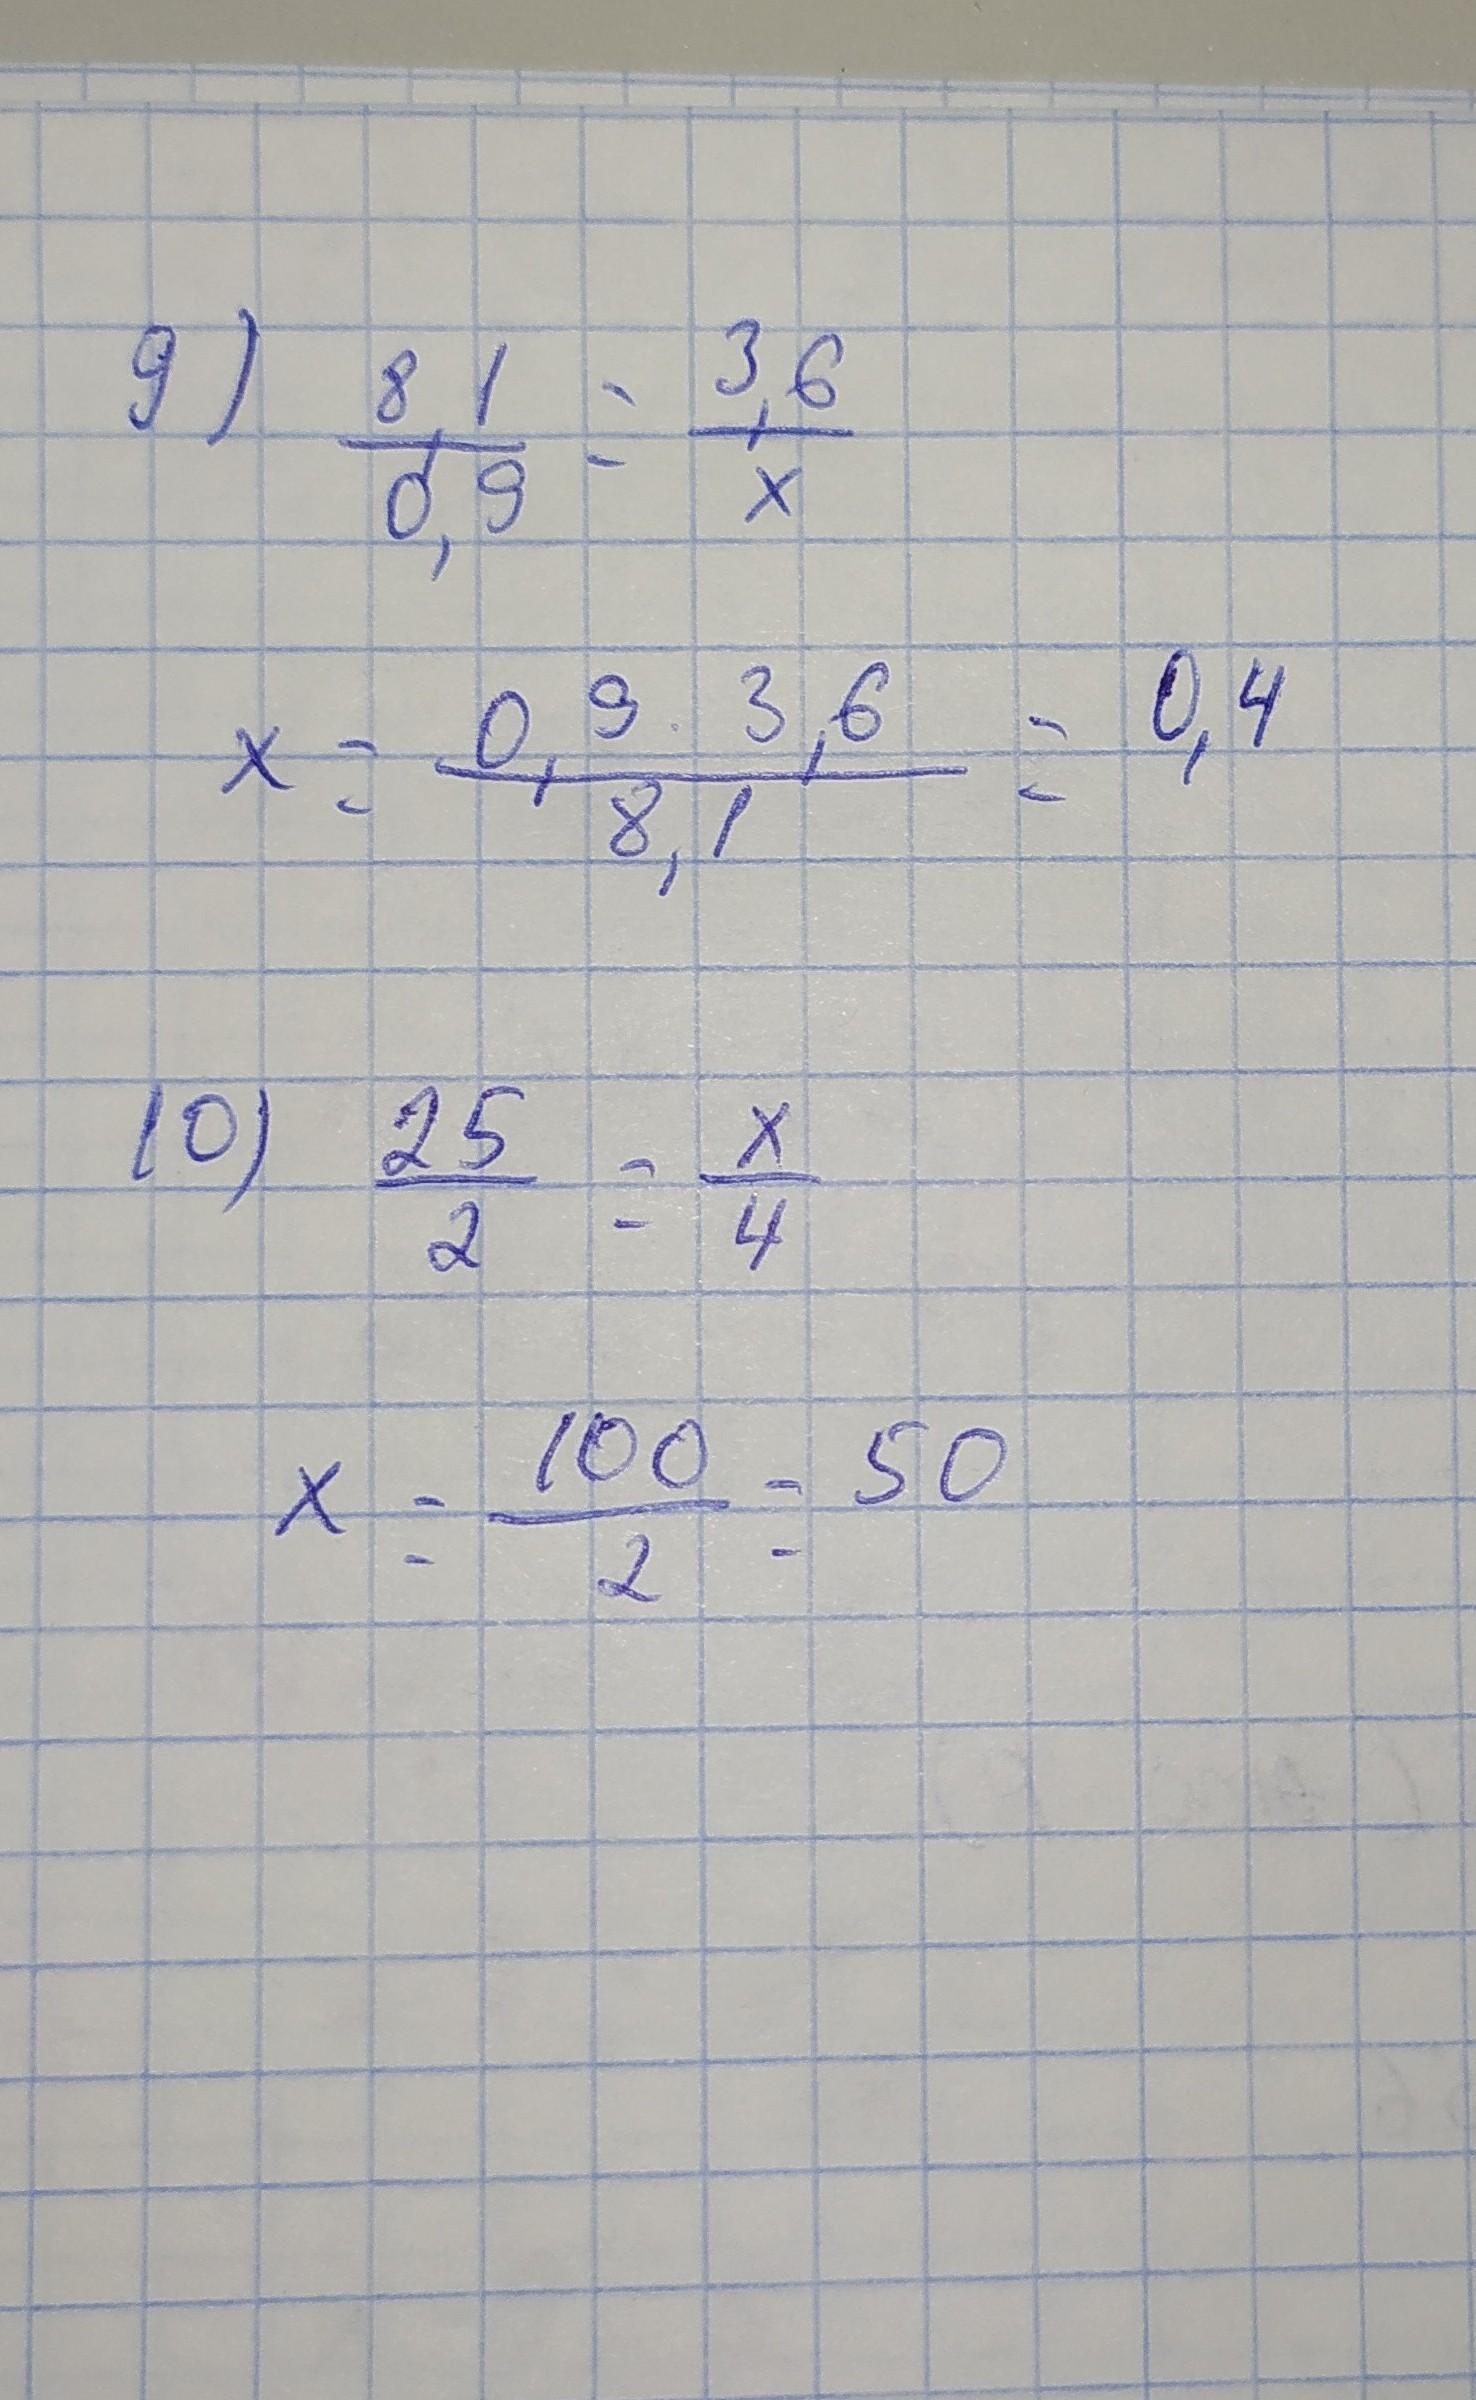 9) 8,1/0,9 = 3,6/x
x = 0,9 · 3,6/8,1 = 0,4
10) 25/2 = x/4
x = 100/2 = 50